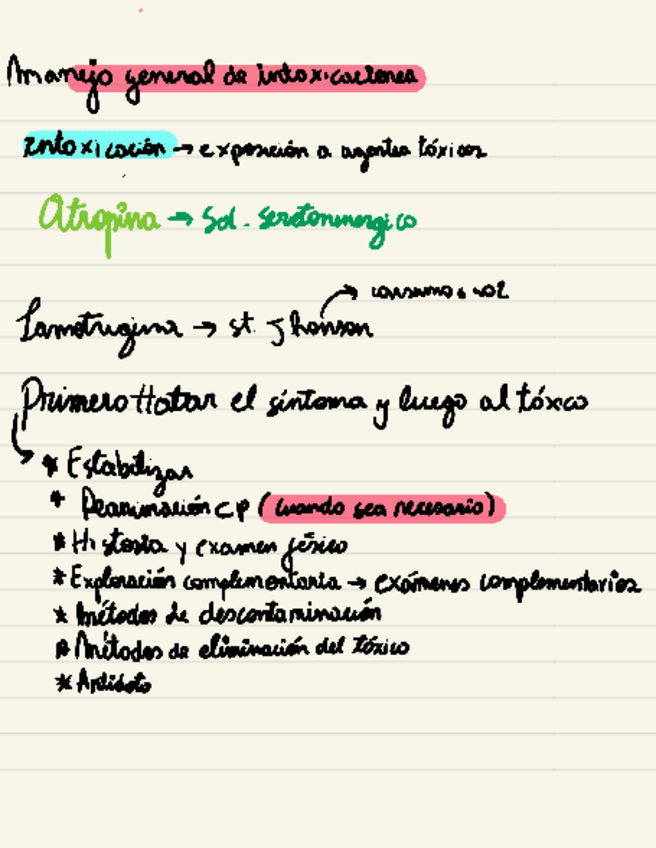 Manejo general de intoxicaciones
Intoxicación → exposición a agentes tóxicos
Atropina → Sol. serotoninergico
→ consumo
Lamotrigina → st. Jhonson
Primero tratar el síntoma y luego al tóxico
* Estabilizar
* Reanimación CP (cuando sea necesario)
* Historia y examen físico
* Exploración complementaria → exámenes complementarios
* métodos de descontaminación
* Métodos de eliminación del tóxico
* Antídoto